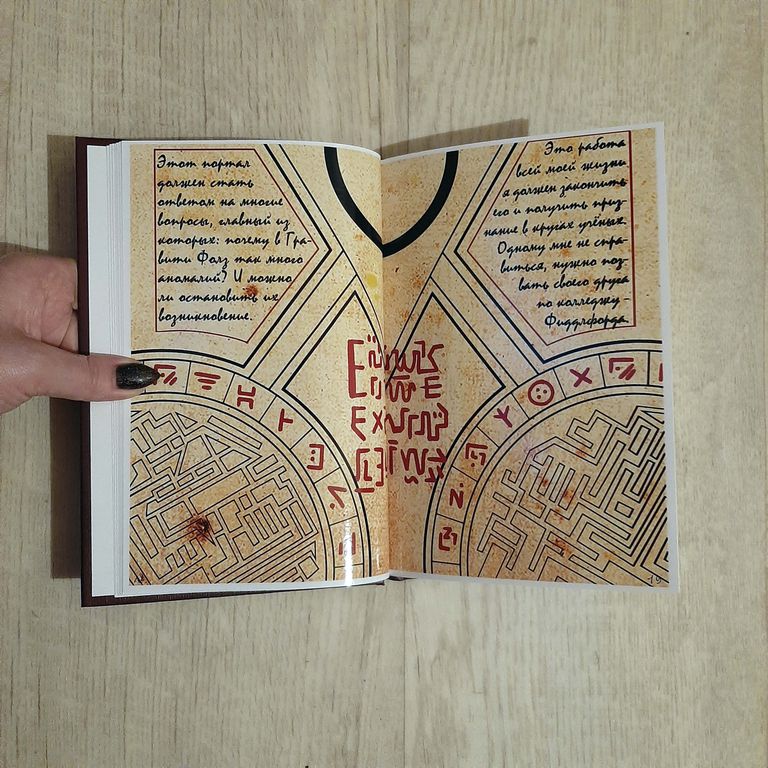 Этот портал
должен стать
ответом на многие
вопросы, главный из
которых: почему в Гра-
вити Фолз так много
аномалий? И можно
ли остановить их
возникновение.
Это работа
всей моей жизни
я должен закончить
его и получить приз-
нание в кругах учёных.
Одному мне не спра-
виться, нужно поз-
вать своего друга
по колледжу -
Фиддлфорда